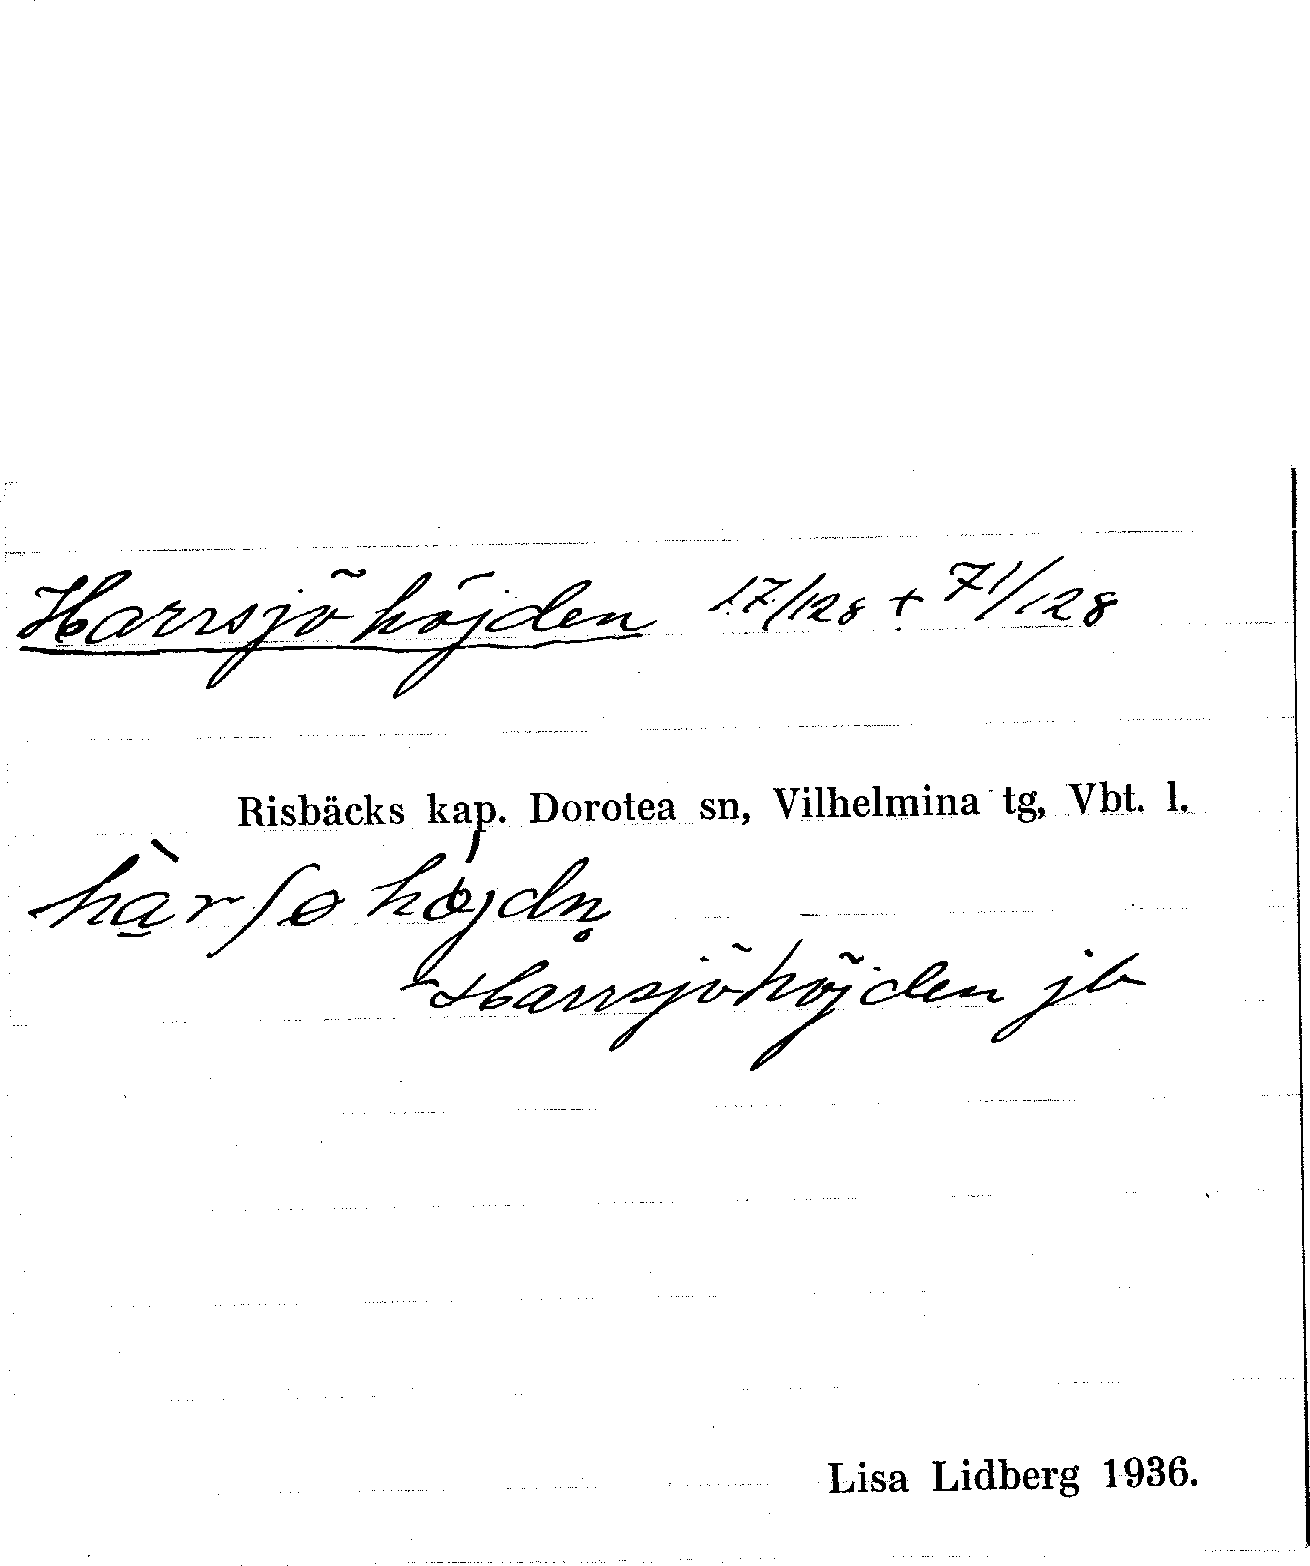 Harrsjöhöjden 17/128 + 71/128
Risbäcks kap. Dorotea sn, Vilhelmina tg, Vbt. l.
hàr̲ʃø höjdn̥
Harrsjöhöjden jb
Lisa Lidberg 1936.